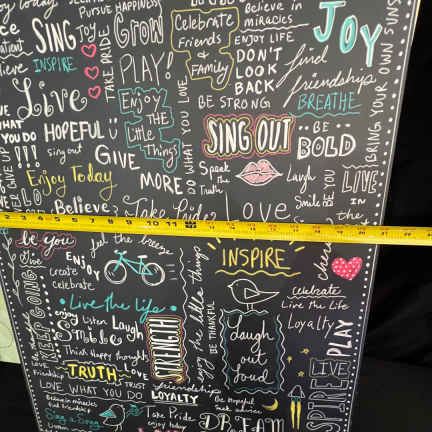 PURSUE HAPPINESS
Believe in
miracles
Joy
Grow
Celebrate
Friends
&
Family
JOY
SING
INSPIRE
TAKE PRIDE
PLAY!
ENJOY LIFE
DON'T
LOOK
BACK
find
friendship
BREATHE
BRING YOUR OWN SUNSHINE
Live
Enjoy
THE
Little
Things
DO WHAT YOU LOVE
BE STRONG
WHAT
YOU DO
HOPEFUL
sing out
SING OUT
BE
BOLD
GIVE
MORE
Speak
the
Truth
Laugh
Smile
LIVE
IN
the
Enjoy Today
Believe
Take Pride
Love
2 3 4 5 6 7 8 9 10 11
be you
feel the breeze
Live
ENJOY
create
celebrate
KEEP GOING
enjoy the little things
INSPIRE
Live the life
BE THANKFUL
celebrate
Live the Life
Loyalty
enjoy
Listen
Laugh
Smile
STRENGTH
laugh
out
loud
PLAY
Think Happy thoughts
Friendship
TRUTH
TRUST
LOVE
LOVE WHAT YOU DO
friendship
LOYALTY
LIVE
INSPIRE
Believe in miracles
find friendship
Be Hopeful
Seek advice
Sing a Song
Take Pride
enjoy today
DREAM